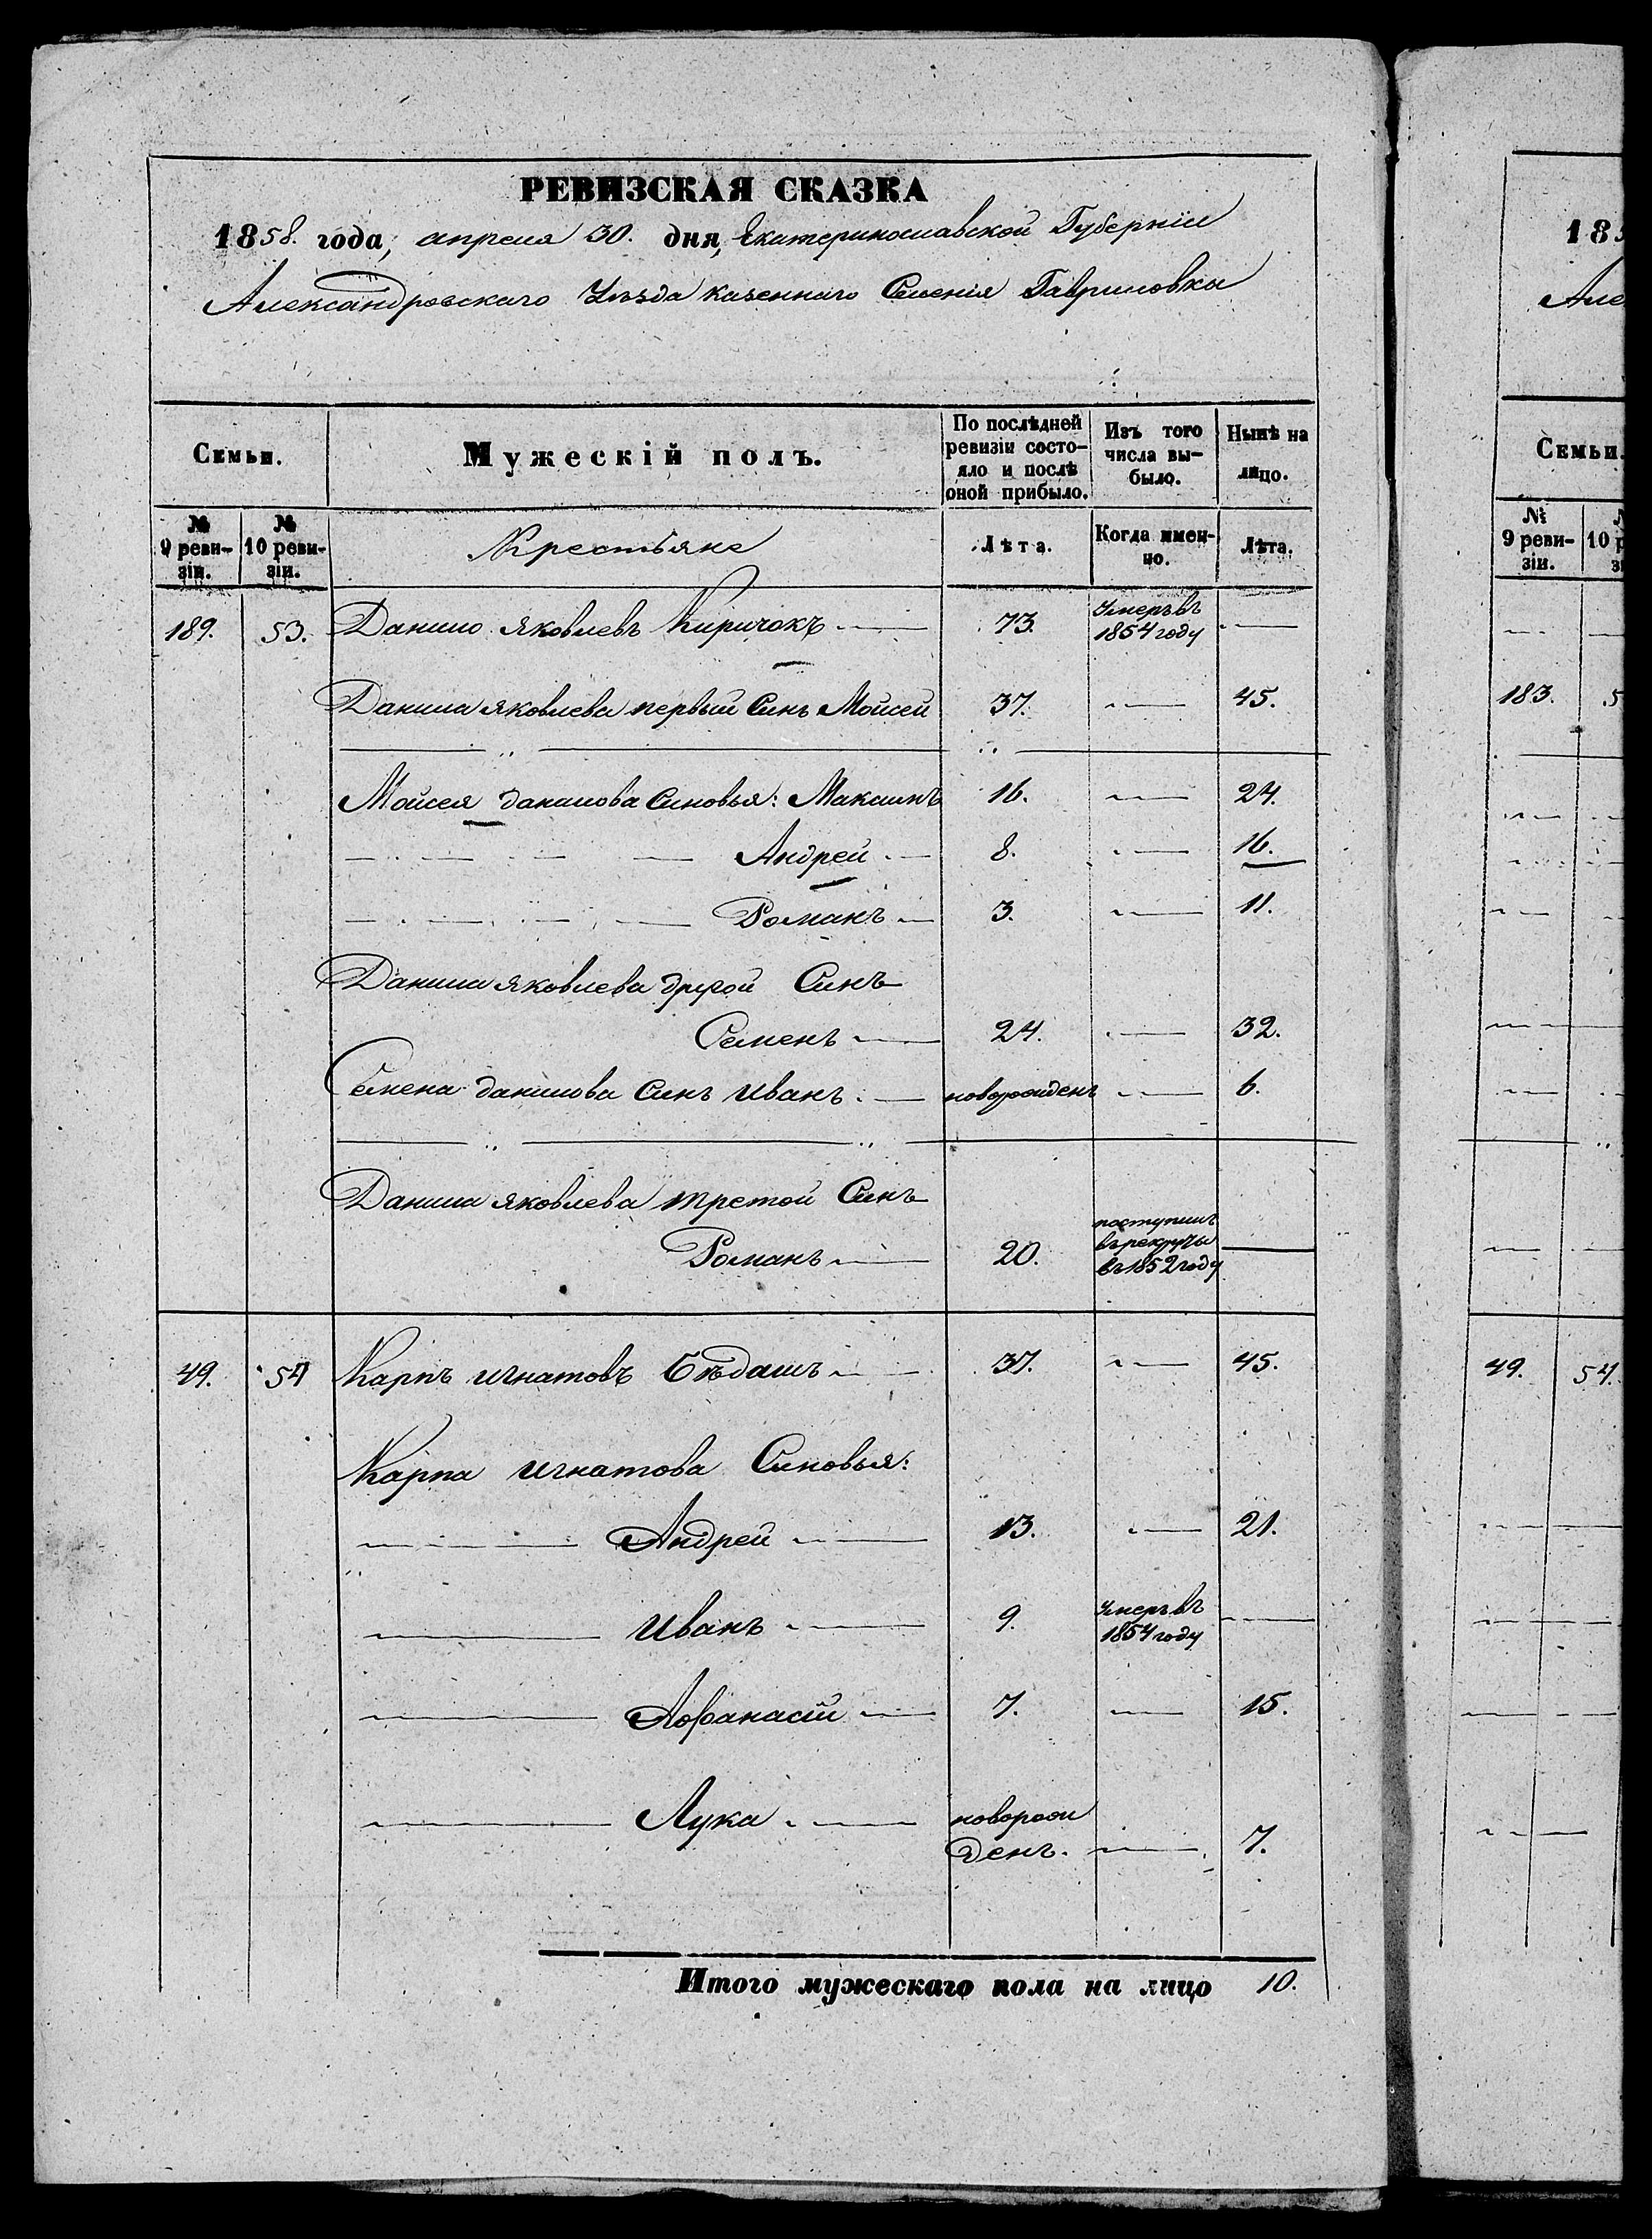 РЕВИЗСКАЯ СКАЗКА
1858. года, апреля 30. дня, Екатеринославской Губерніи
Александровскаго Уѣзда казеннаго Селенія Гавриловки
Семьи.
Мужескій полъ.
По послѣдней ревизіи состояло и послѣ оной прибыло.
Изъ того числа выбыло.
Нынѣ на лицо.
№ 9 ревизіи.
№ 10 ревизіи.
Крестьяне
Лѣта.
Когда именно.
Лѣта.
189. 53. Данило Яковлевъ Киричокъ — 73. Умеръ въ 1854 году —
Данила Яковлева первый Синъ Мойсей 37. — 45.
Мойсея Данилова Синовья: Максимъ 16. — 24.
Андрей — 8. — 16.
Романъ — 3. — 11.
Данила Яковлева другой Синъ
Семенъ — 24. — 32.
Семена Данилова Синъ Иванъ — новорожденъ — 6.
Данила Яковлева третой Синъ
Романъ — 20. поступилъ въ рекруты въ 1852 году —
49. 54 Карпъ Игнатовъ Бѣдашъ — 37. — 45.
Карпа Игнатова Синовья:
Андрей — 13. — 21.
Иванъ — 9. Умеръ въ 1854 году —
Афанасій — 7. — 15.
Лука — новорожденъ. — 7.
Итого мужескаго пола на лицо 10.
185
Але
Семьи.
№ 9 ревизіи.
10 р
183. 5
49. 54.